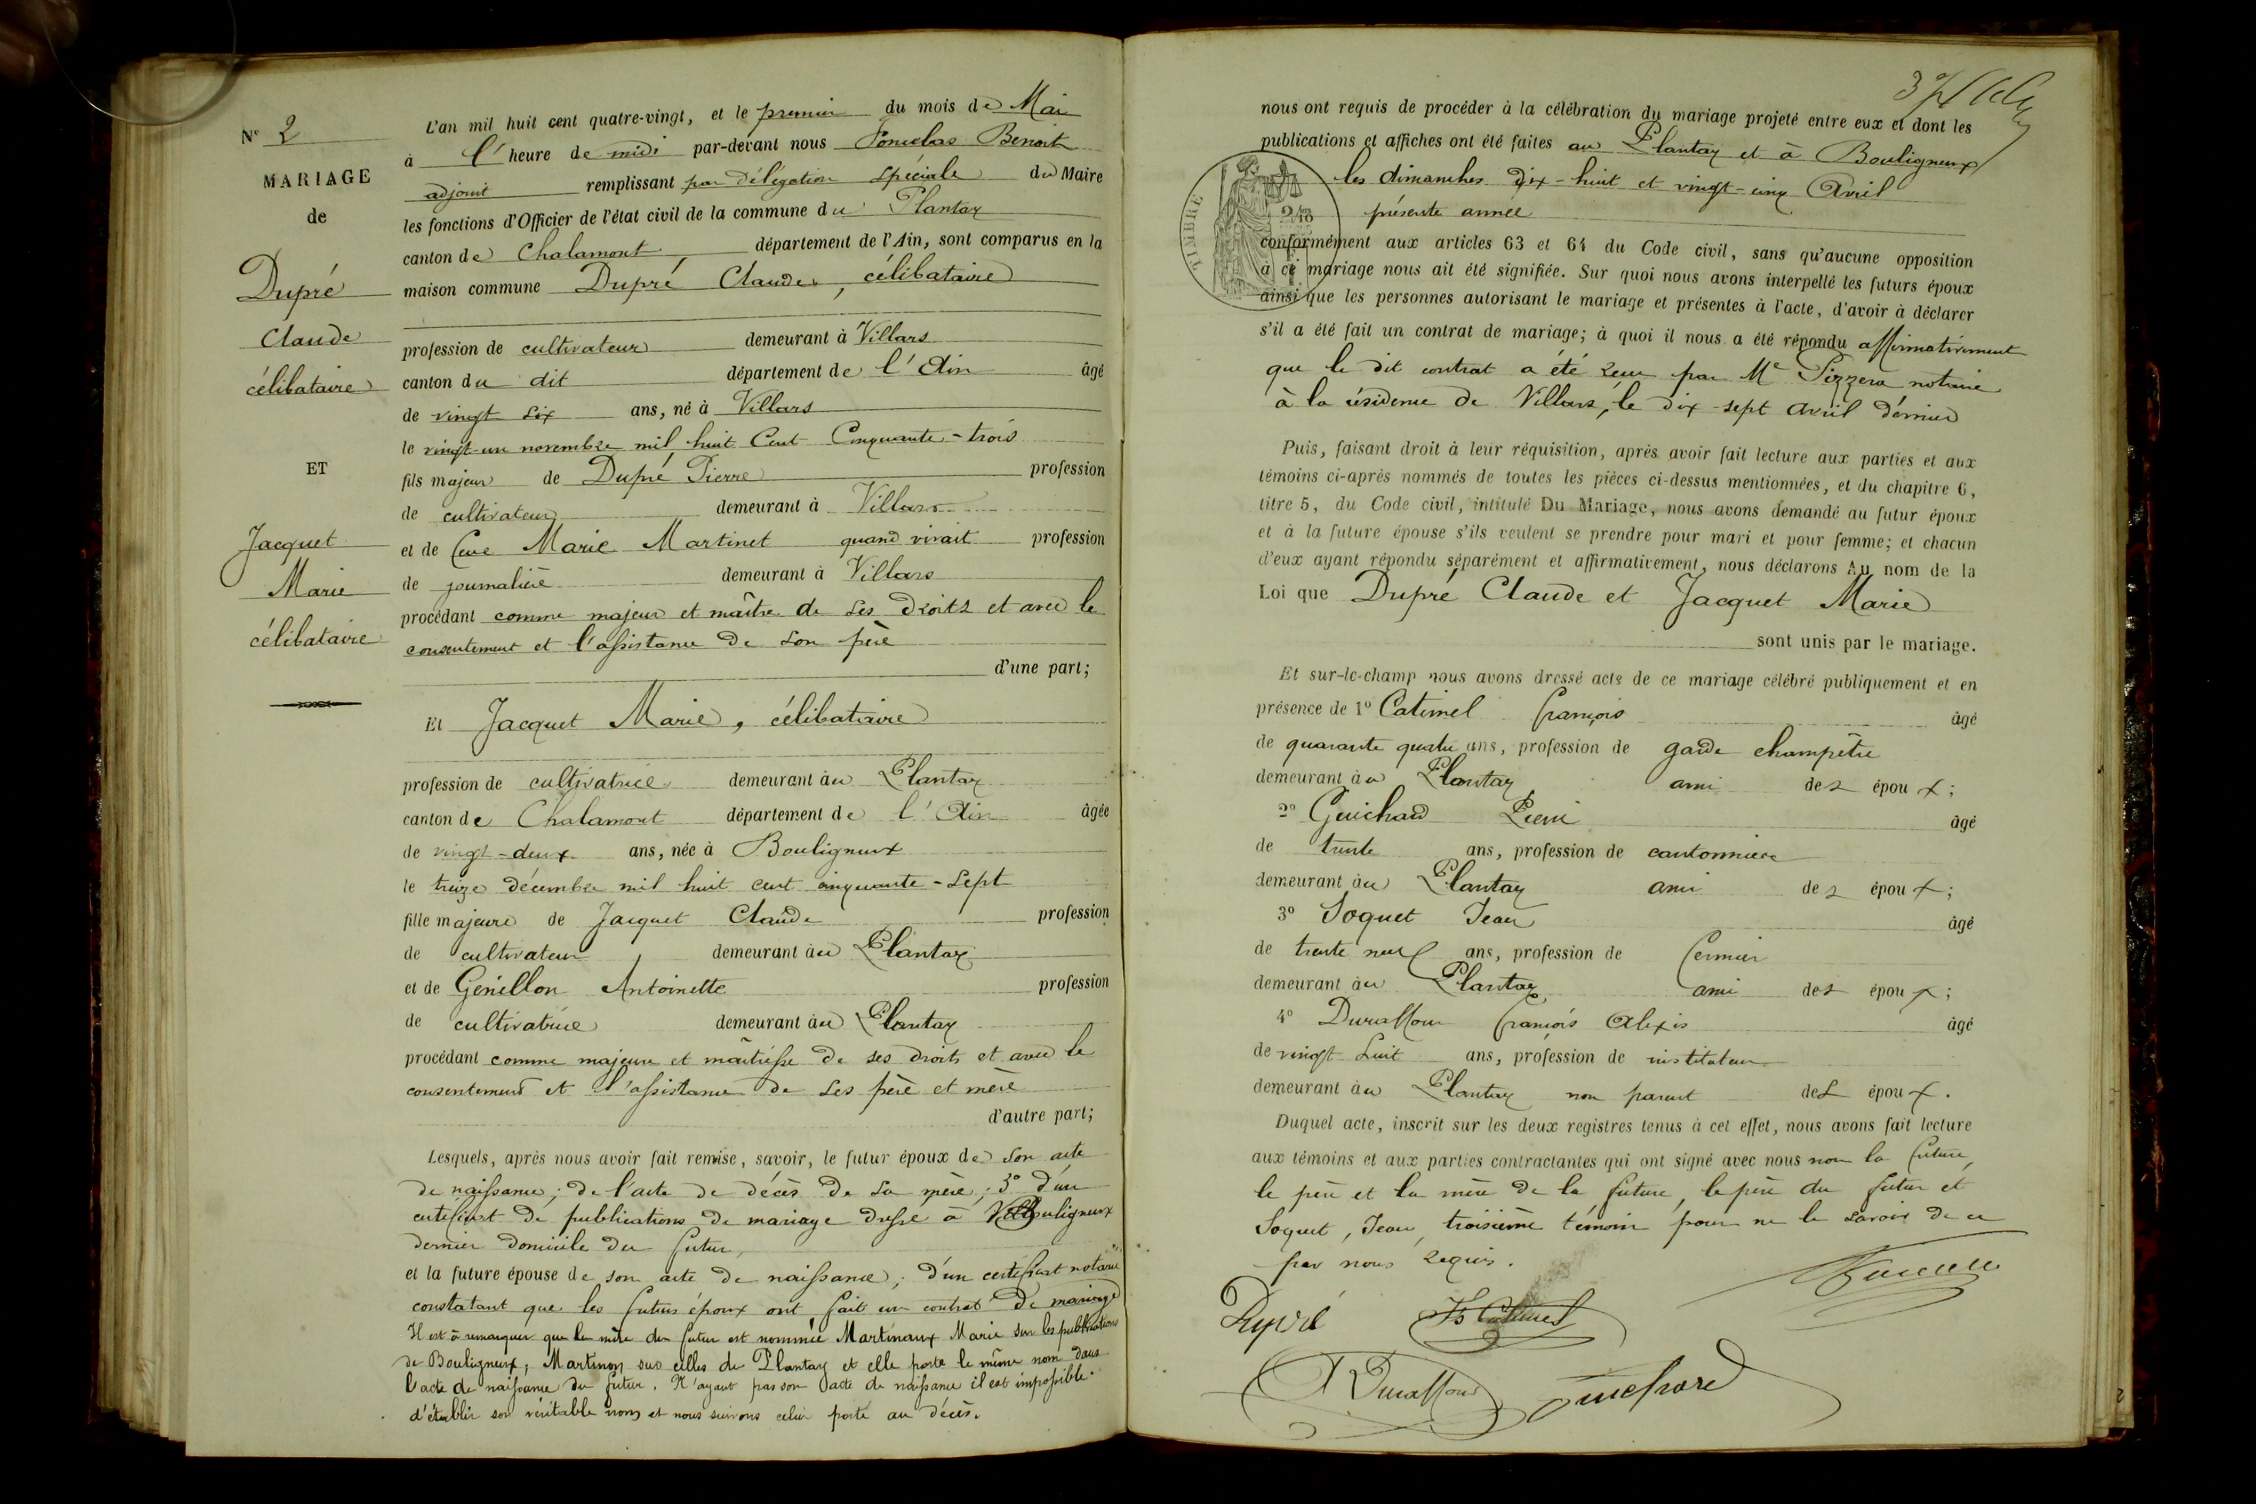 N° 2
MARIAGE
de
Dupré
Claude
célibataire
ET
Jacquet
Marie
célibataire
L'an mil huit cent quatre-vingt, et le premier du mois de Mai
à l'heure de midi par-devant nous Benoit
adjoint remplissant par délégation spéciale du Maire
les fonctions d'Officier de l'état civil de la commune du Plantay
canton de Chalamont département de l'Ain, sont comparus en la
maison commune Dupré Claude, célibataire
profession de cultivateur demeurant à Villars
canton du dit département de l'Ain âgé
de vingt six ans, né à Villars
le vingt-un novembre mil huit Cent Cinquante-trois
fils majeur de Dupré Pierre profession
de cultivateur demeurant à Villars
et de feue Marie Martinet quand vivait profession
de journalière demeurant à Villars
procédant comme majeur et maître de ses droits et avec le
consentement et l'assistance de son père
d'une part;
Et Jacquet Marie, célibataire
profession de cultivatrice demeurant au Plantay
canton de Chalamont département de l'Ain âgée
de vingt-deux ans, née à Bouligneux
le treize décembre mil huit cent cinquante-sept
fille majeure de Jacquet Claude profession
de cultivateur demeurant au Plantay
et de Genillon Antoinette profession
de cultivatrice demeurant au Plantay
procédant comme majeure et maîtresse de ses droits et avec le
consentement et l'assistance de ses père et mère
d'autre part;
Lesquels, après nous avoir fait remise, savoir, le futur époux de son acte
de naissance; de l'acte de décès de sa mère; 3° d'un
certificat de publications de mariage dressé à Bouligneux
dernier domicile du futur,
et la future épouse de son acte de naissance; d'un certificat notarié
constatant que les futurs époux ont fait un contrat de mariage
Il est à remarquer que la mère du futur est nommée Martinaux Marie sur les publications
de Bouligneux, Martinon sur celles du Plantay et elle porte le même nom dans
l'acte de naissance du futur. N'ayant pas son acte de naissance il est impossible
d'établir son véritable nom et nous suivons celui porté au décès.
nous ont requis de procéder à la célébration du mariage projeté entre eux et dont les
publications et affiches ont été faites au Plantay et à Bouligneux
les dimanches dix-huit et vingt-cinq Avril
présente année
TIMBRE
conformément aux articles 63 et 64 du Code civil, sans qu'aucune opposition
à ce mariage nous ait été signifiée. Sur quoi nous avons interpellé les futurs époux
ainsi que les personnes autorisant le mariage et présentes à l'acte, d'avoir à déclarer
s'il a été fait un contrat de mariage; à quoi il nous a été répondu affirmativement
que le dit contrat a été reçu par Me Pizzera notaire
à la résidence de Villars, le dix-sept avril dernier
Puis, faisant droit à leur réquisition, après avoir fait lecture aux parties et aux
témoins ci-après nommés de toutes les pièces ci-dessus mentionnées, et du chapitre 6,
titre 5, du Code civil, intitulé Du Mariage, nous avons demandé au futur époux
et à la future épouse s'ils veulent se prendre pour mari et pour femme; et chacun
d'eux ayant répondu séparément et affirmativement, nous déclarons Au nom de la
Loi que Dupré Claude et Jacquet Marie
sont unis par le mariage.
Et sur-le-champ nous avons dressé acte de ce mariage célébré publiquement et en
présence de 1° Catimel françois âgé
de quarante quatre ans, profession de garde champêtre
demeurant au Plantay ami des époux;
2° Guichard Pierre âgé
de trente ans, profession de cantonnier
demeurant au Plantay ami des époux;
3° Soquet Jean âgé
de trente neuf ans, profession de fermier
demeurant au Plantay ami des époux;
4° Duraffour françois Alexis âgé
de vingt huit ans, profession de instituteur
demeurant au Plantay non parent des époux.
Duquel acte, inscrit sur les deux registres tenus à cet effet, nous avons fait lecture
aux témoins et aux parties contractantes qui ont signé avec nous non la future,
le père et la mère de la future, le père du futur et
Soquet, Jean, troisième témoin pour ne le savoir de ce
par nous requis.
Dupré
Fs Catimel
Duraffour
Guichard